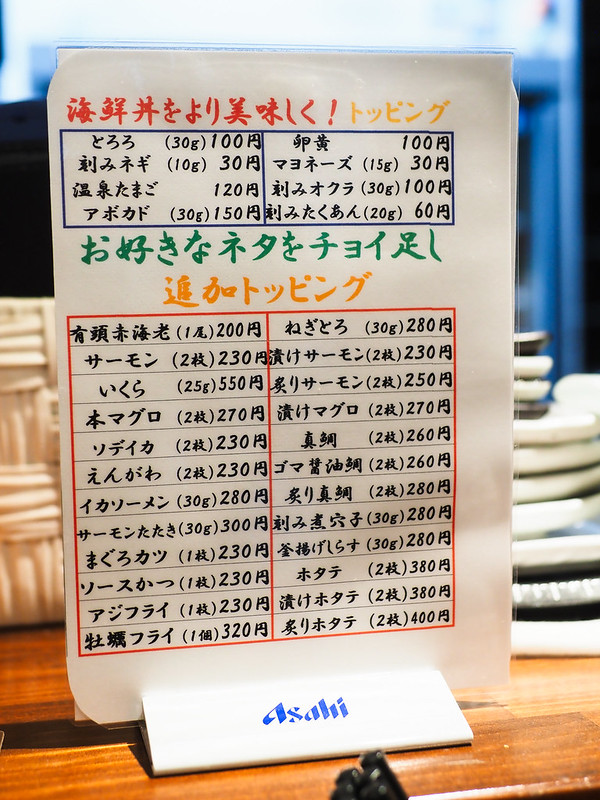 海鮮丼をより美味しく！トッピング
とろろ (30g) 100円 卵黄 100円
刻みネギ (10g) 30円 マヨネーズ (15g) 30円
温泉たまご 120円 刻みオクラ (30g) 100円
アボカド (30g) 150円 刻みたくあん (20g) 60円
お好きなネタをチョイ足し
追加トッピング
有頭赤海老 (1尾) 200円 ねぎとろ (30g) 280円
サーモン (2枚) 230円 漬けサーモン (2枚) 230円
いくら (25g) 550円 炙りサーモン (2枚) 250円
本マグロ (2枚) 270円 漬けマグロ (2枚) 270円
ソデイカ (2枚) 230円 真鯛 (2枚) 260円
えんがわ (2枚) 230円 ゴマ醤油鯛 (2枚) 260円
イカソーメン (30g) 280円 炙り真鯛 (2枚) 280円
サーモンたたき (30g) 300円 刻み煮穴子 (30g) 280円
まぐろカツ (1枚) 230円 釜揚げしらす (30g) 280円
ソースかつ (1枚) 230円 ホタテ (2枚) 380円
アジフライ (1枚) 230円 漬けホタテ (2枚) 380円
牡蠣フライ (1個) 320円 炙りホタテ (2枚) 400円
Asahi